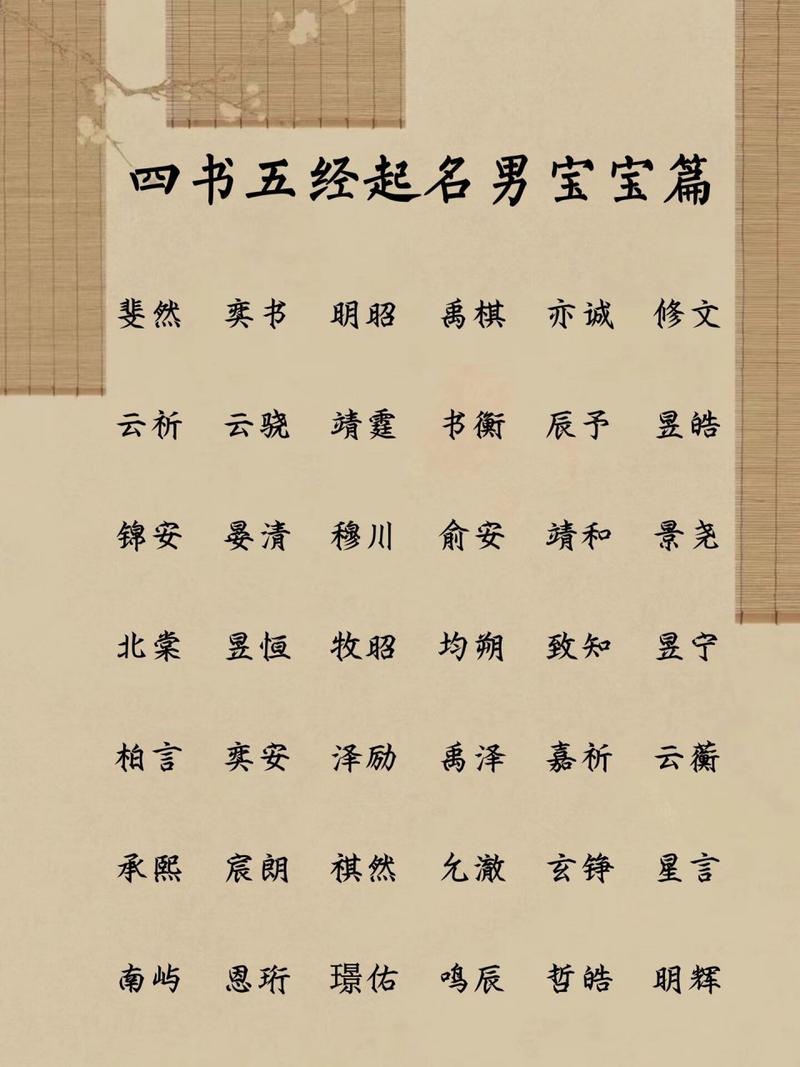 四书五经起名男宝宝篇
斐然 奕书 明昭 禹棋 亦诚 修文
云祈 云骁 靖霆 书衡 辰予 昱皓
锦安 晏清 穆川 俞安 靖和 景尧
北棠 昱恒 牧昭 均朔 致知 昱宁
柏言 奕安 泽励 禹泽 嘉祈 云蘅
承熙 宸朗 祺然 允澈 玄铮 星言
南屿 恩珩 璟佑 鸣辰 哲皓 明辉